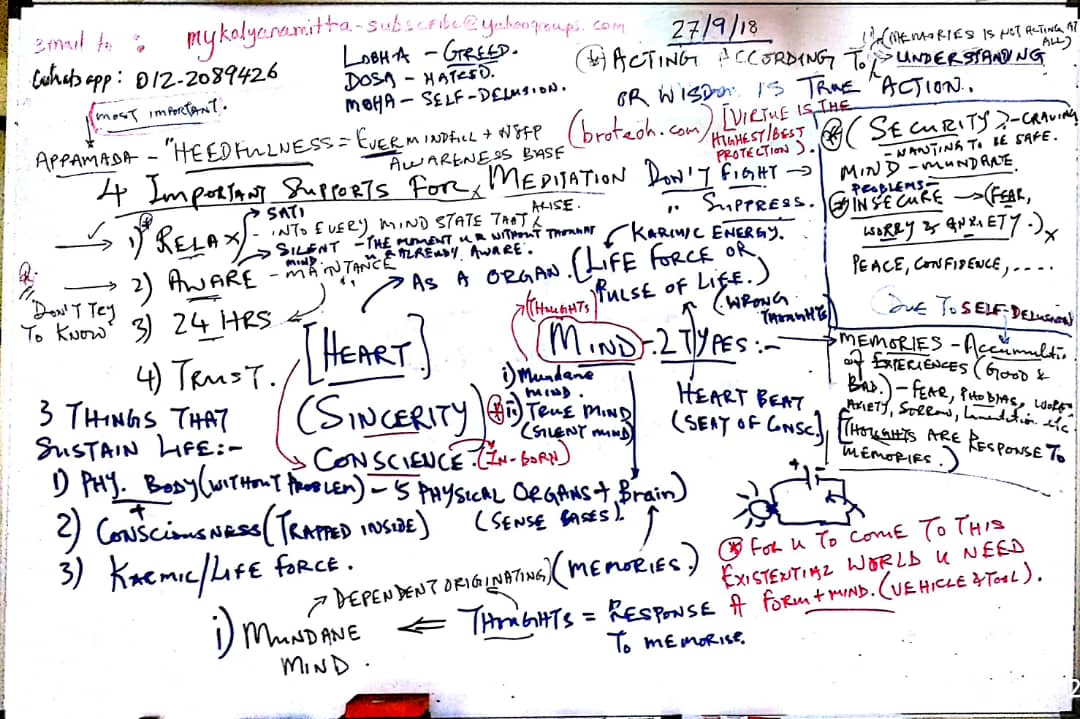 Email to : mykalyanamitta-subscribe@yahoogroups.com
Whatsapp: 012-2089426
27/9/18
(MEMORIES IS NOT ACTING AT ALL)
LOBHA - GREED.
DOSA - HATRED.
MOHA - SELF-DELUSION.
ACTING ACCORDING TO UNDERSTANDING
OR WISDOM IS TRUE ACTION.
MOST IMPORTANT.
APPAMADA - "HEEDFULNESS = EVER MINDFULL +
AWARENESS BASE
(broteoh.com)
[VIRTUE IS THE
HIGHEST/BEST
PROTECTION].
(SECURITY) - CRAVING
- WANTING TO BE SAFE.
MIND - MUNDANE.
PROBLEMS -
INSECURE → (FEAR,
WORRY & ANXIETY.)
PEACE, CONFIDENCE, ....
4 IMPORTANT SUPPORTS FOR MEDITATION
DON'T FIGHT →
" SUPPRESS.
1) RELAX
SATI
- INTO EVERY MIND STATE THAT
ARISE.
SILENT MIND - THE MOMENT U R WITHOUT THOUGHT
U R ALREADY AWARE.
2) AWARE - MAINTANCE
DON'T TRY
TO KNOW
3) 24 HRS
4) TRUST.
AS A ORGAN.
[HEART]
(SINCERITY)
CONSCIENCE. (IN-BORN)
KARMIC ENERGY.
(LIFE FORCE OR
PULSE OF LIFE.)
(THOUGHTS)
(WRONG
THOUGHTS)
MIND - 2 TYPES :-
i) Mundane
MIND.
ii) TRUE MIND
(SILENT MIND)
HEART BEAT
(SEAT OF CONSC.)
DUE TO SELF-DELUSION
MEMORIES - Accumulation
of EXPERIENCES (GOOD &
BAD.) - FEAR, PHOBIAS, WORRY
ANXIETY, SORROW, Lamentation etc.
[THOUGHTS ARE RESPONSE TO
MEMORIES.)
3 THINGS THAT
SUSTAIN LIFE:-
1) PHY. BODY (WITHOUT PROBLEM) - 5 PHYSICAL ORGANS + Brain)
(SENSE BASES).
2) CONSCIOUSNESS (TRAPPED INSIDE)
3) KARMIC/LIFE FORCE.
(MEMORIES.)
FOR U TO COME TO THIS
EXISTENTIAL WORLD U NEED
A FORM + MIND. (VEHICLE & TOOL).
DEPENDENT ORIGINATING)
i) MUNDANE
MIND.
THOUGHTS = RESPONSE
TO MEMORISE.